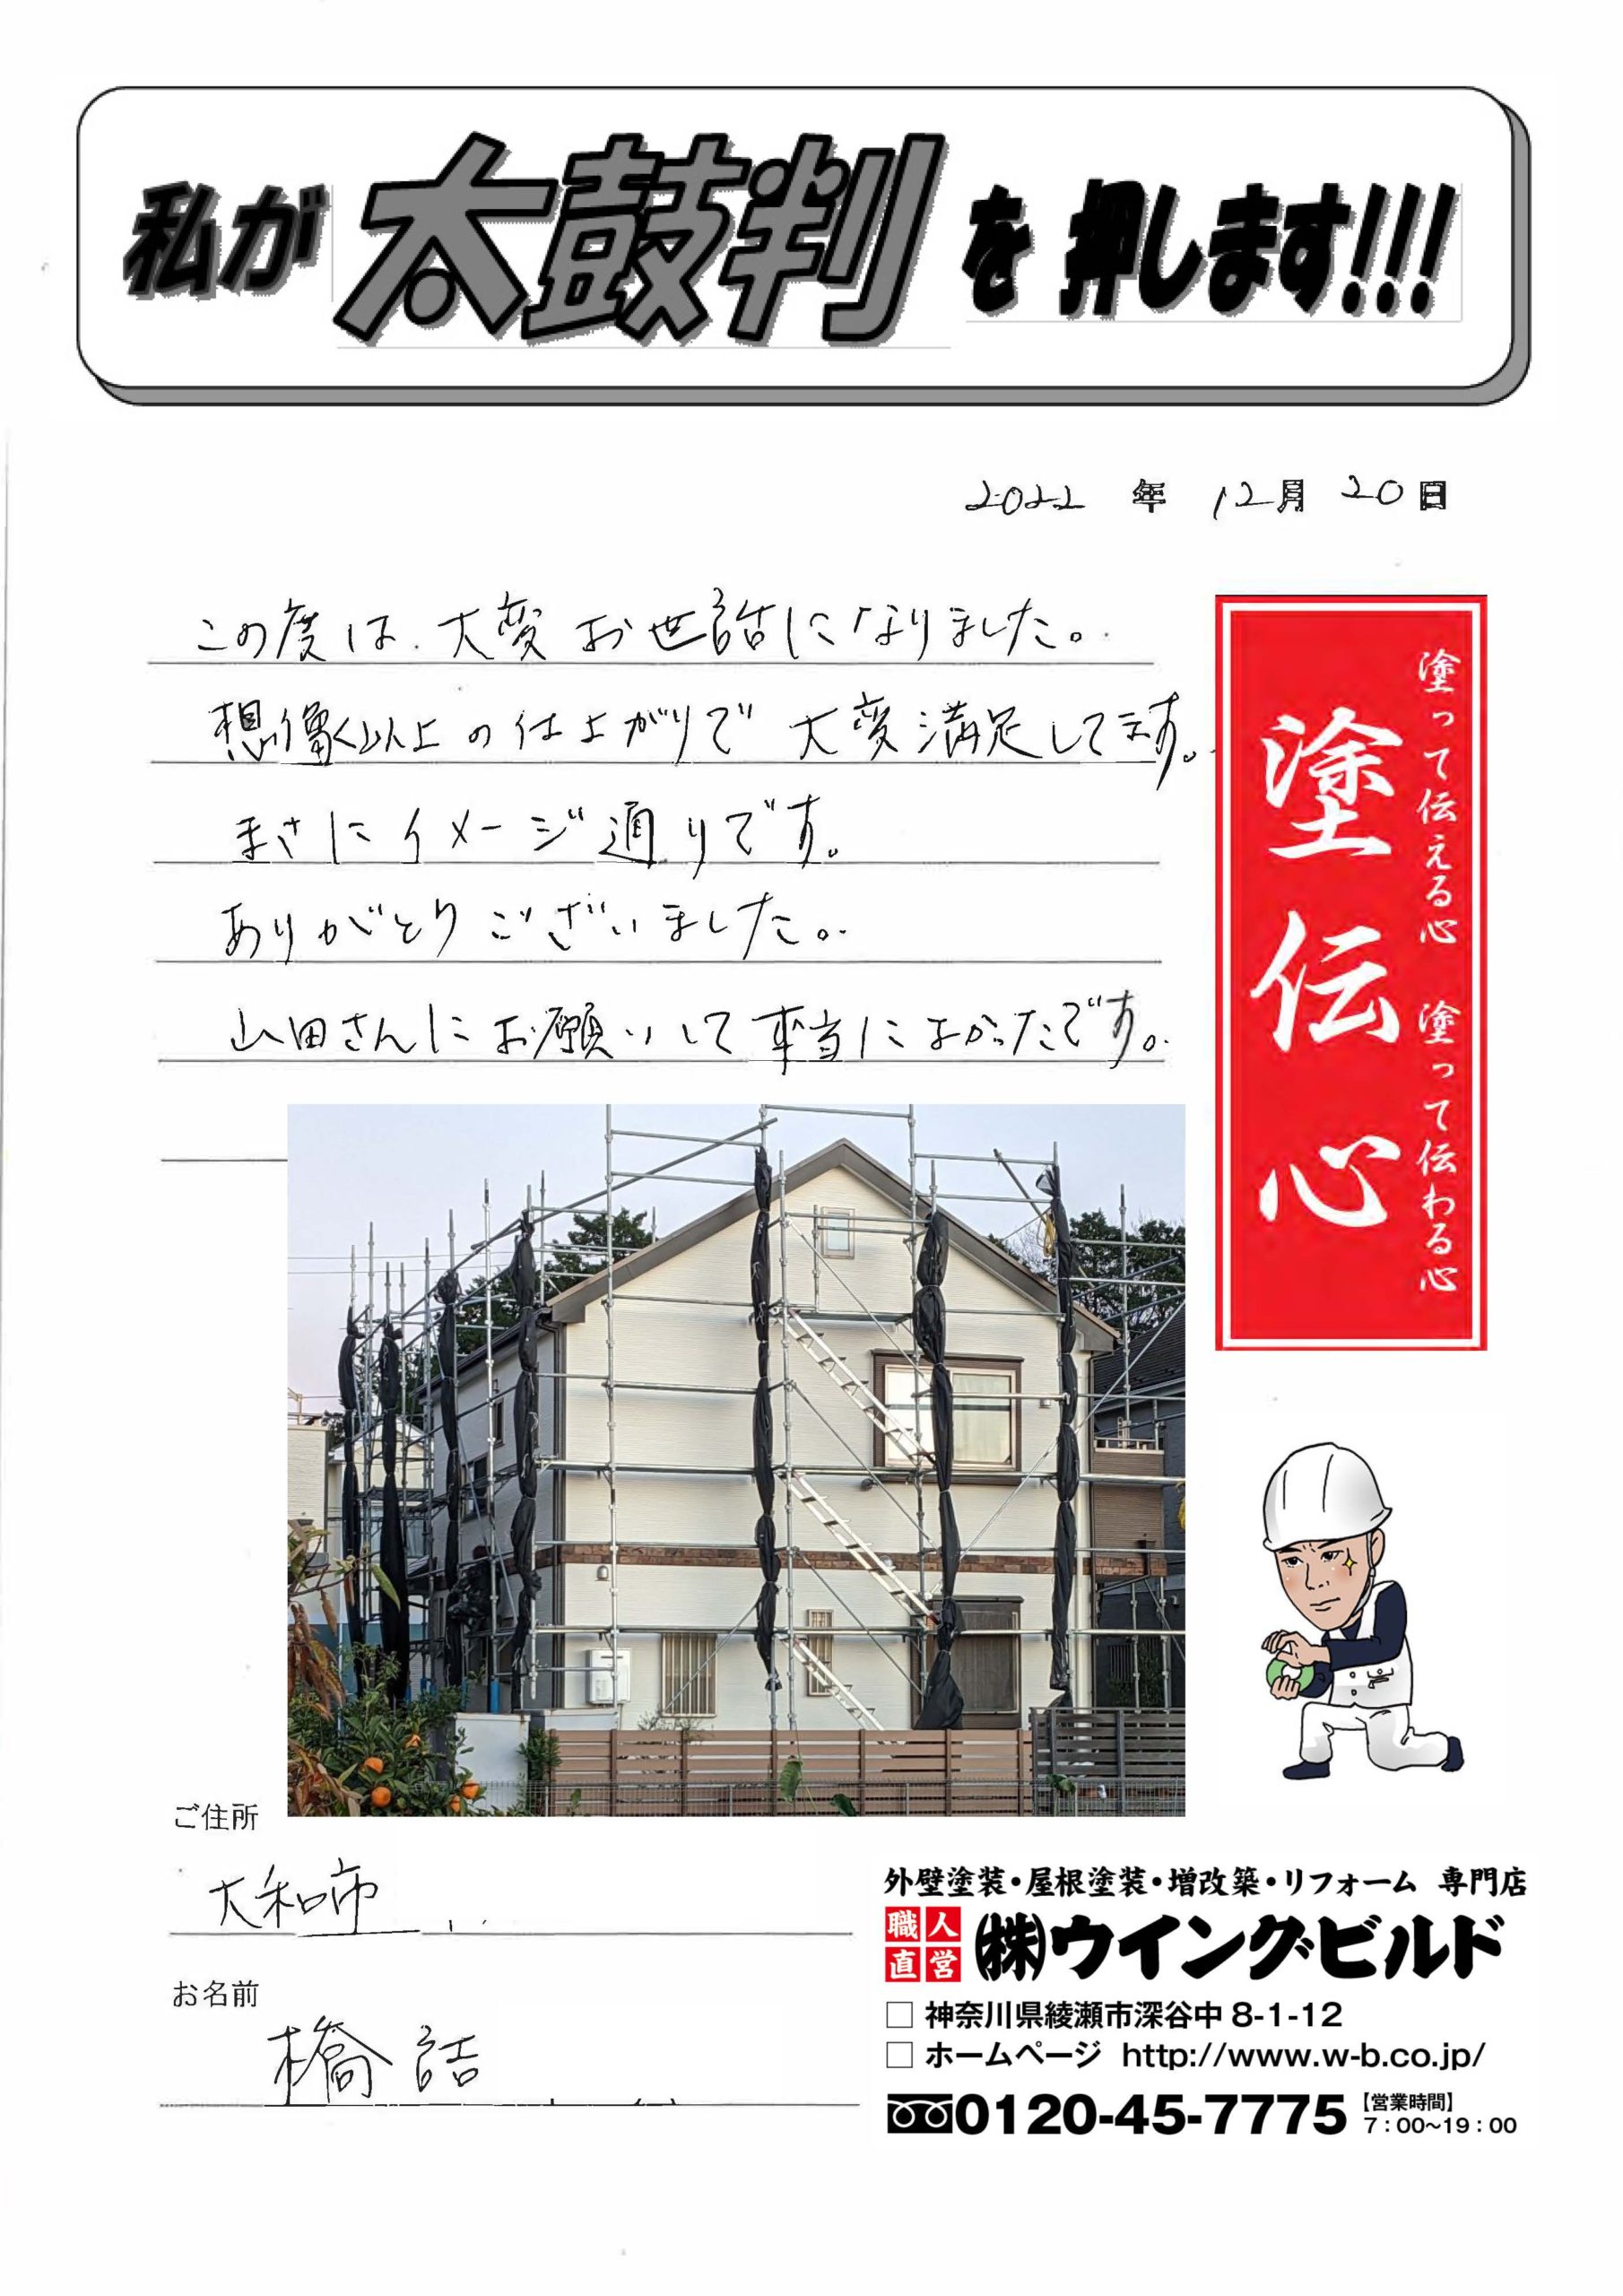 私が 太鼓判 を 押します!!!
2022 年 12月 20日
この度は、大変お世話になりました。
想像以上の仕上がりで 大変満足してます。
まさにイメージ通りです。
ありがとうございました。
山田さんにお願いして本当によかったです。
塗って伝える心 塗って伝わる心
塗伝心
ご住所
大和市
お名前
橋詰
外壁塗装・屋根塗装・増改築・リフォーム 専門店
職人直営 ㈱ウイングビルド
□ 神奈川県綾瀬市深谷中 8-1-12
□ ホームページ http://www.w-b.co.jp/
0120-45-7775 【営業時間】 7:00~19:00